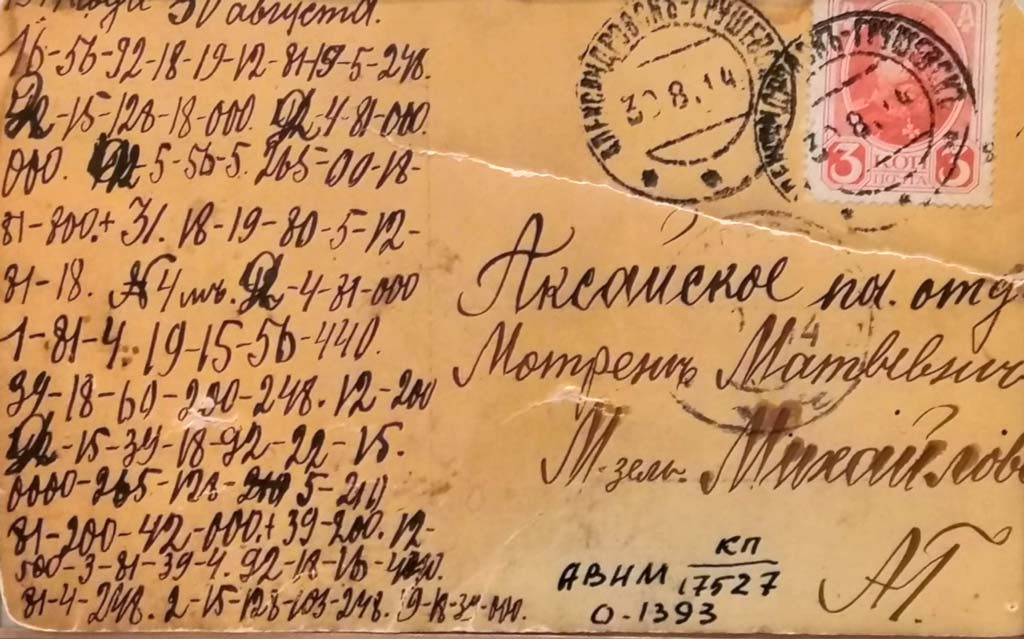 30 августа.
16-56-92-18-19-12-81-19-5-248.
92-15-128-18-000. 92-4-81-000.
000. 92-5-56-5. 265-00-18-
81-800.+31. 18-19-80-5-12-
81-18. 92-4-81-000
1-81-4. 19-15-56-440.
39-18-60-230-248. 12-200
92-15-39-18-92-22-15.
0000-265-128- 5-210
81-200-42-000.+39-200. 12-
500-3-81-39-4. 92-18-16-
81-4-248. 2-15-128-103-248. 9-18-30-000.
АЛЕКСАНДРОВСКЪ-ГРУШЕВСКІЙ
30.8.14
3 КОП 3
ПОЧТА
Аксайское по. отд
Мотренѣ Матвѣевнѣ
М-зель. Михайлов
АТ
АВНМ КП
17527
О-1393